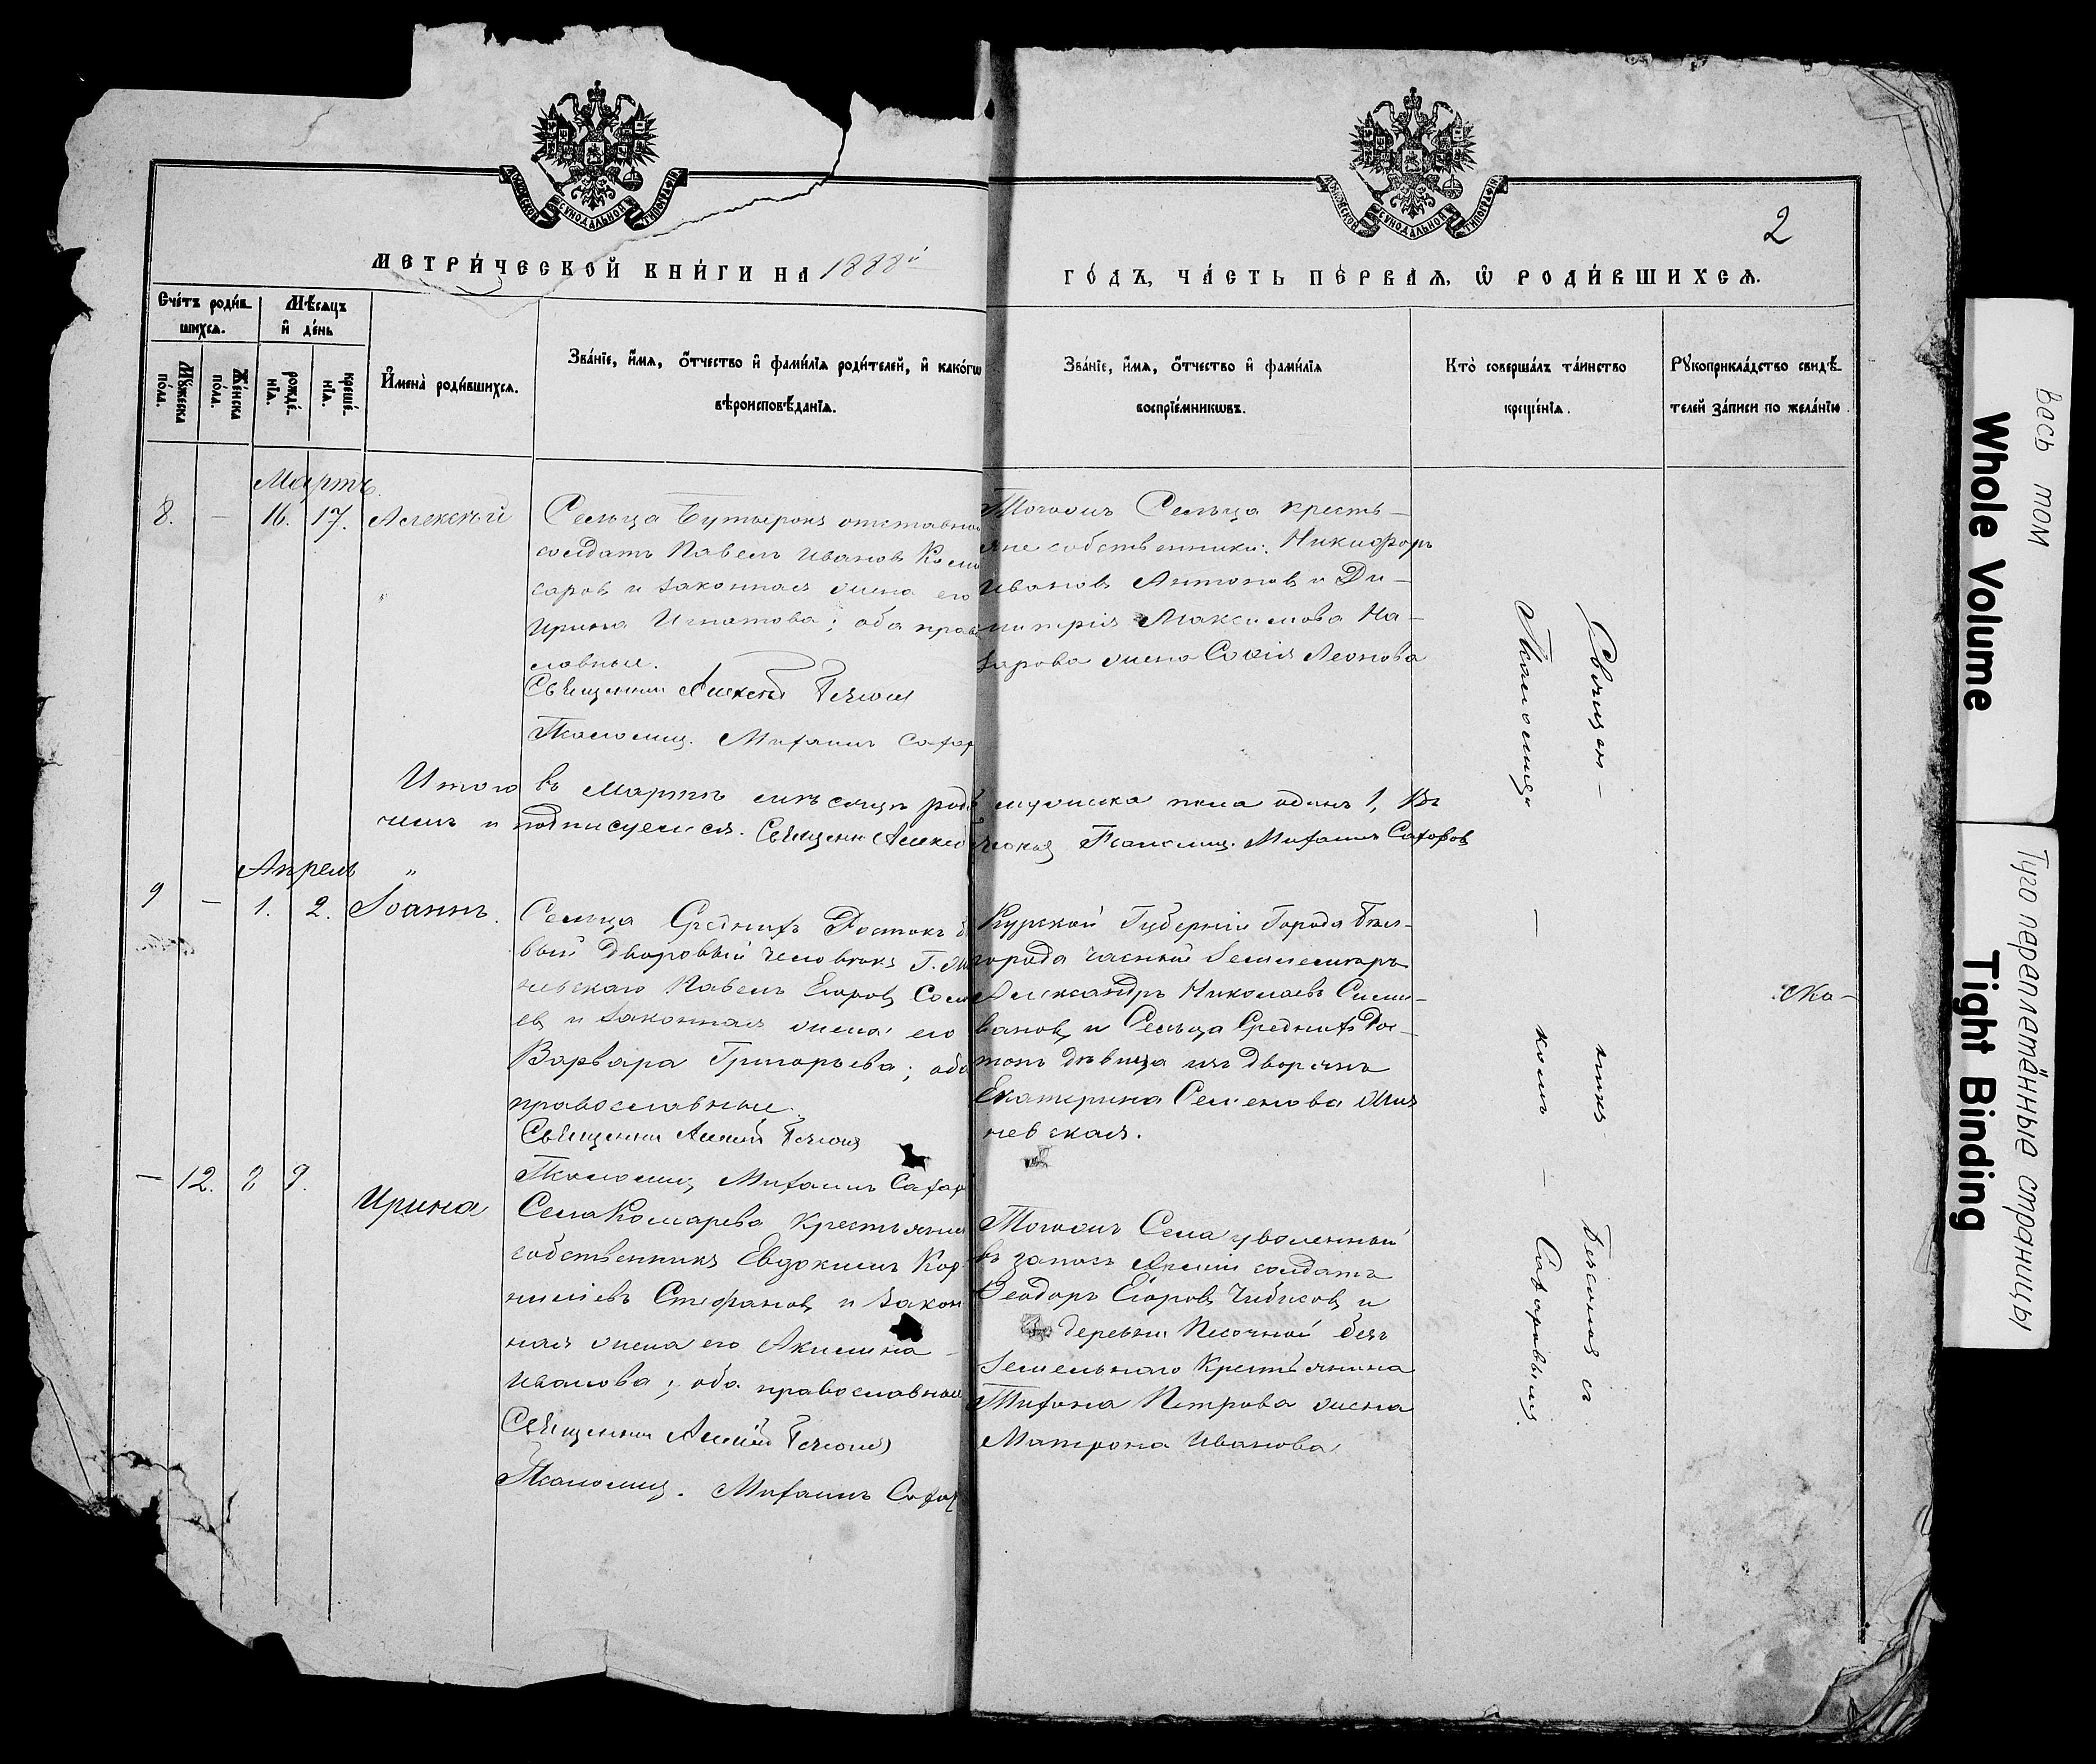 МОСКОВСКОЙ СУНОДАЛЬНОЙ ТИПОГРАФІИ
МОСКОВСКОЙ СУНОДАЛЬНОЙ ТИПОГРАФІИ
2
МЕТРИ́ЧЕСКОЙ КНИ́ГИ НА 1888й
ГО́ДЪ, ЧА́СТЬ ПЕ́РВАЯ, Ѡ РОДИ́ВШИХСЯ.
Сче́тъ роди́в-
шихся.
Мѣ́сяцъ
и҆ де́нь
Мꙋ́жеска
по́ла.
Же́нска
по́ла.
рожде́-
нїя.
креще́-
нїя.
И҆мена̀ роди́вшихся.
Зва́нїе, и҆́мя, ѻ҆́тчество и҆ фамі́лїя роди́телей, и҆ како́гѡ
вѣроисповѣ́данїя.
Зва́нїе, и҆́мя, ѻ҆́тчество и҆ фамі́лїя
воспрїе́мникѡвъ.
Кто̀ соверша́лъ та́инство
креще́нїя.
Рꙋкоприкла́дство свидѣ́-
телей за́писи по жела́нїю.
Мартъ.
8. — 16. 17. Алексѣй
Сельца Бутырокъ отставной
солдатъ Павелъ Ивановъ
саровъ и законная жена его
Ирина Игнатова; оба право
славные.
Священникъ Алексѣй
Псаломщ. Михаилъ Сахар
Тогожъ Сельца кресть-
яне собственники: Никифоръ
Ивановъ Антоновъ и Ди-
митрія Максимова На-
зарова жена Софія Леонова
Итого въ Мартѣ мѣсяцѣ род
мужеска пола одинъ 1, Въ
чемъ и подписуемся. Священн. Алексѣй
Псаломщ. Михаилъ Сахаровъ
Апрель "
9 — 1. 2. Іоаннъ.
Сельца Среднихъ Ростокъ б
вый дворовый человѣкъ Г.
невскаго Павелъ Егоровъ
евъ и законная жена его
Варвара Григорьева; оба
православные.
Священникъ Алексѣй
Псаломщ. Михаилъ Сахар
Курской Губерніи Города Бѣл-
города частный Землемѣръ
Александръ Николаевъ Сели-
вановъ и Сельца Среднихъ Рос-
токъ дѣвица изъ дворянъ
Екатерина Семенова
невская.
— 12. 8 9. Ирина
Села Комарева Крестьянинъ
собственникъ Евдокимъ Кор-
ниліевъ Стефановъ и закон
ная жена его Акилина
Иванова; оба православные
Священникъ Алексѣй
Псаломщ. Михаилъ Сахар
Тогожъ Села уволенный
въ запасъ Арміи солдатъ
Ѳеодоръ Егоровъ Чибисовъ и
деревни Песочной без
земельнаго Крестьянина
Тихона Петрова жена
Матрона Иванова
Священ-
никъ
съ
Псаломщи-
комъ — Сахаровымъ.
весь том
Whole Volume
Туго переплетённые страницы
Tight Binding